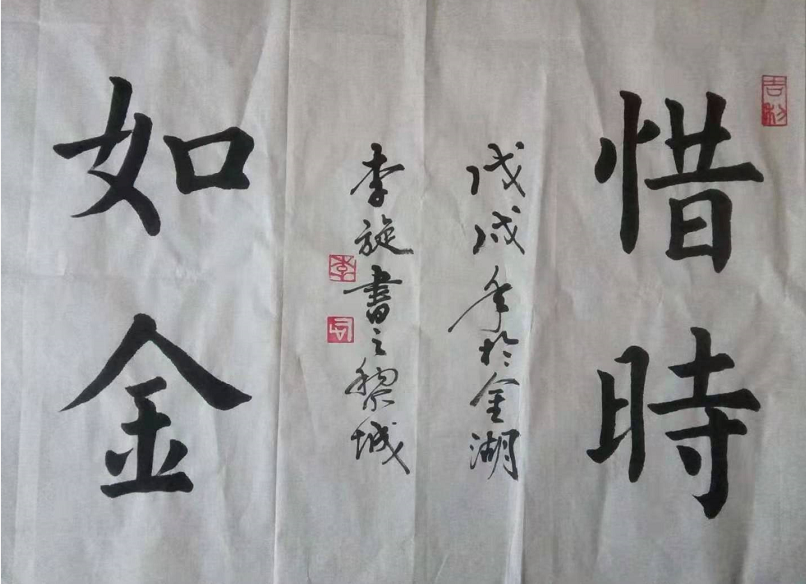 惜時
如金
戊戌年於金湖
李旋書之黎城
吉利
李